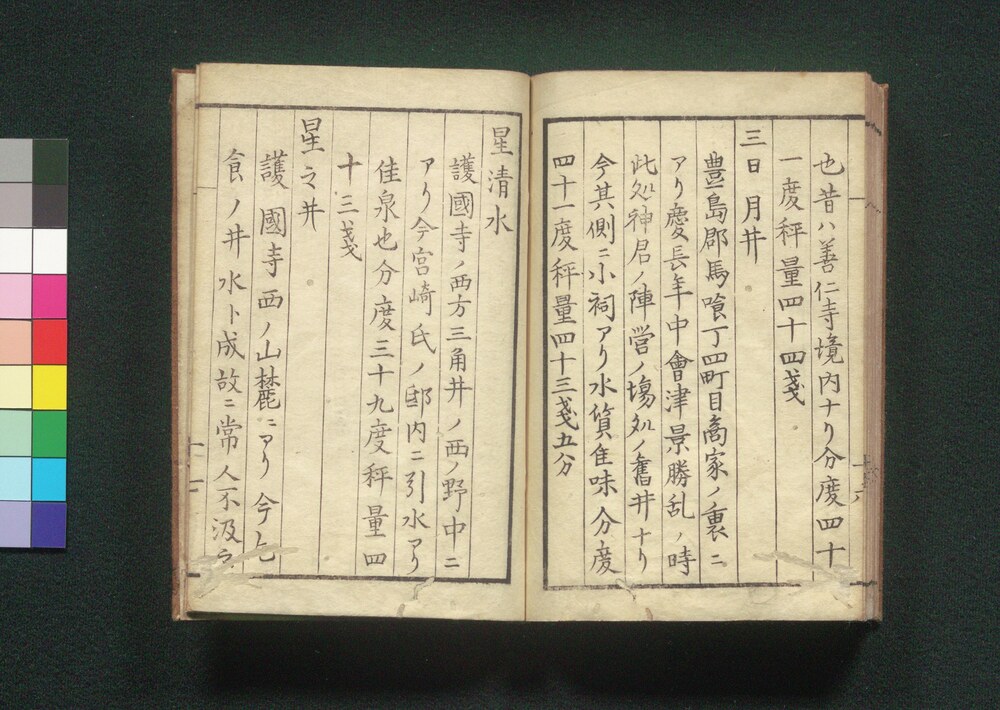 也昔ハ善仁寺境内ナリ分度四十
一度秤量四十四戔
三日月井
豊島郡馬喰丁四町目商家ノ裏ニ
アリ慶長年中會津景勝乱ノ時
此処神君ノ陣営ノ場処ノ舊井ナリ
今其側ニ小祠アリ水質佳味分度
四十一度秤量四十三戔五分
星清水
護國寺ノ西方三角井ノ西ノ野中ニ
アリ今宮崎氏ノ邸内ニ引水アリ
佳泉也分度三十九度秤量四
十三戔
星之井
護國寺西ノ山麓ニアリ今乞
食ノ井水ト成故ニ常人不汲之